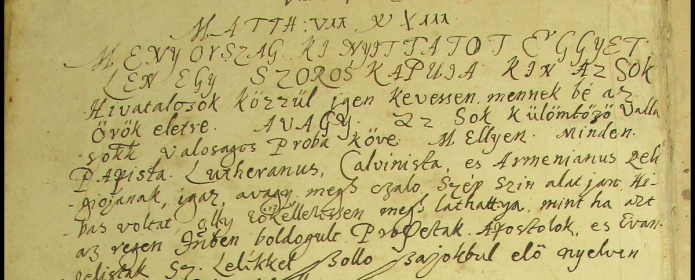 MATTH: VII XIII
MENYORSZAG KI NYITTATOT EGGYET
LEN EGY SZOROS KAPUIA KIN AZ SOK
Hivatalosok közzül igen kevessen mennek bé az
Örök eletre. AVAGY. Az Sok külömböző Valla
sokk Valosagos Proba köve. Mellyen. Minden.
PApista. Lutheranus, Calvinista, es Armenianus Reli
giojanak, igaz, avagy megh czalo Szép Szin alat jart Hi-
bas voltat, olly tökelletessen megh láthattya mint ha azt
az regen Jüben boldogult Profetak Apostolok, es Evan-
gelistak Sz. Lelikkel Bollo Szajokbul elő nyelven